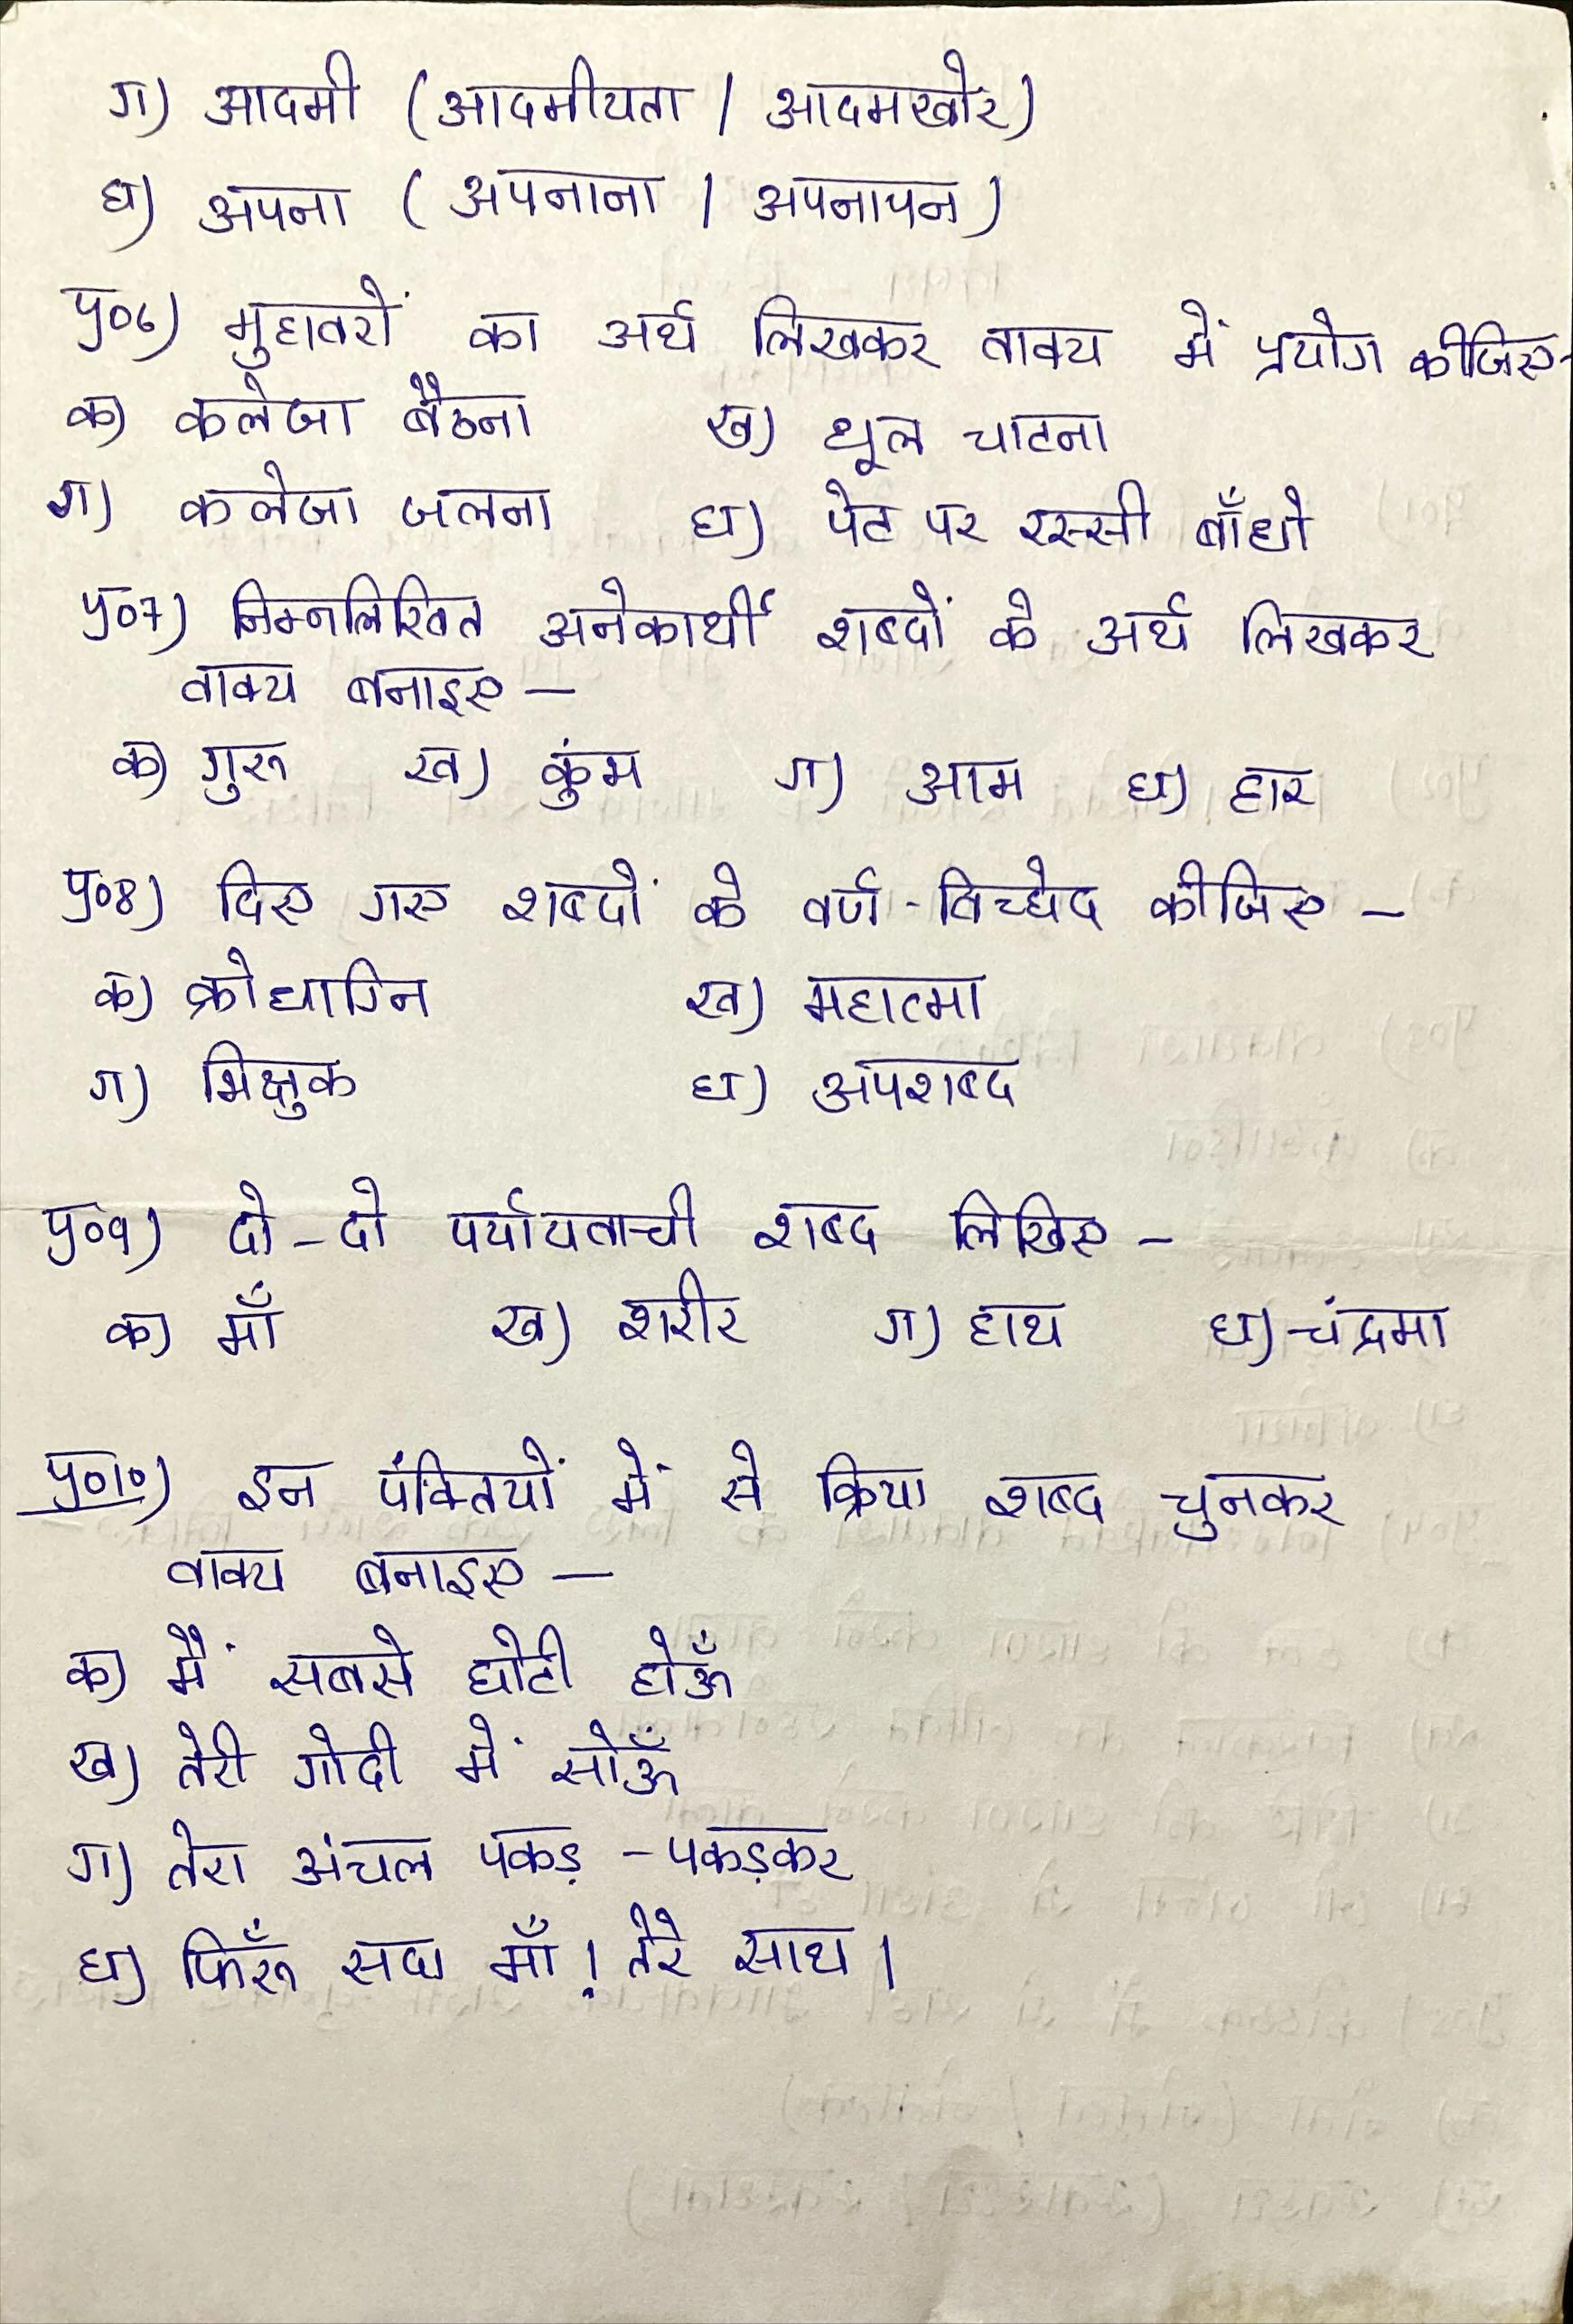 ग) आदमी (आदमीयता / आदमखोर)
घ) अपना (अपनाना / अपनापन)
प्र०6) मुहावरों का अर्थ लिखकर वाक्य में प्रयोग कीजिए-
क) कलेजा बैठना ख) धूल चाटना
ग) कलेजा जलना घ) पेट पर रस्सी बाँधो
प्र०7) निम्नलिखित अनेकार्थी शब्दों के अर्थ लिखकर
वाक्य बनाइए –
क) गुरू ख) कुंभ ग) आम घ) हार
प्र०8) दिए गए शब्दों के वर्ण-विच्छेद कीजिए –
क) क्रोधाग्नि ख) महात्मा
ग) भिक्षुक घ) अपशब्द
प्र०9) दो-दो पर्यायवाची शब्द लिखिए –
क) माँ ख) शरीर ग) हाथ घ) चंद्रमा
प्र०10) इन पंक्तियों में से क्रिया शब्द चुनकर
वाक्य बनाइए –
क) मैं सबसे छोटी होऊँ
ख) तेरी गोदी में सोऊँ
ग) तेरा अंचल पकड़-पकड़कर
घ) फिरूँ सदा माँ! तेरे साथ।